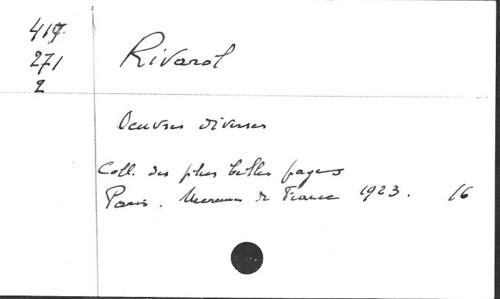 419.
271
2
Rivarol
Oeuvres diverses
Coll. des plus belles pages
Paris. Mercure de France 1923. 16